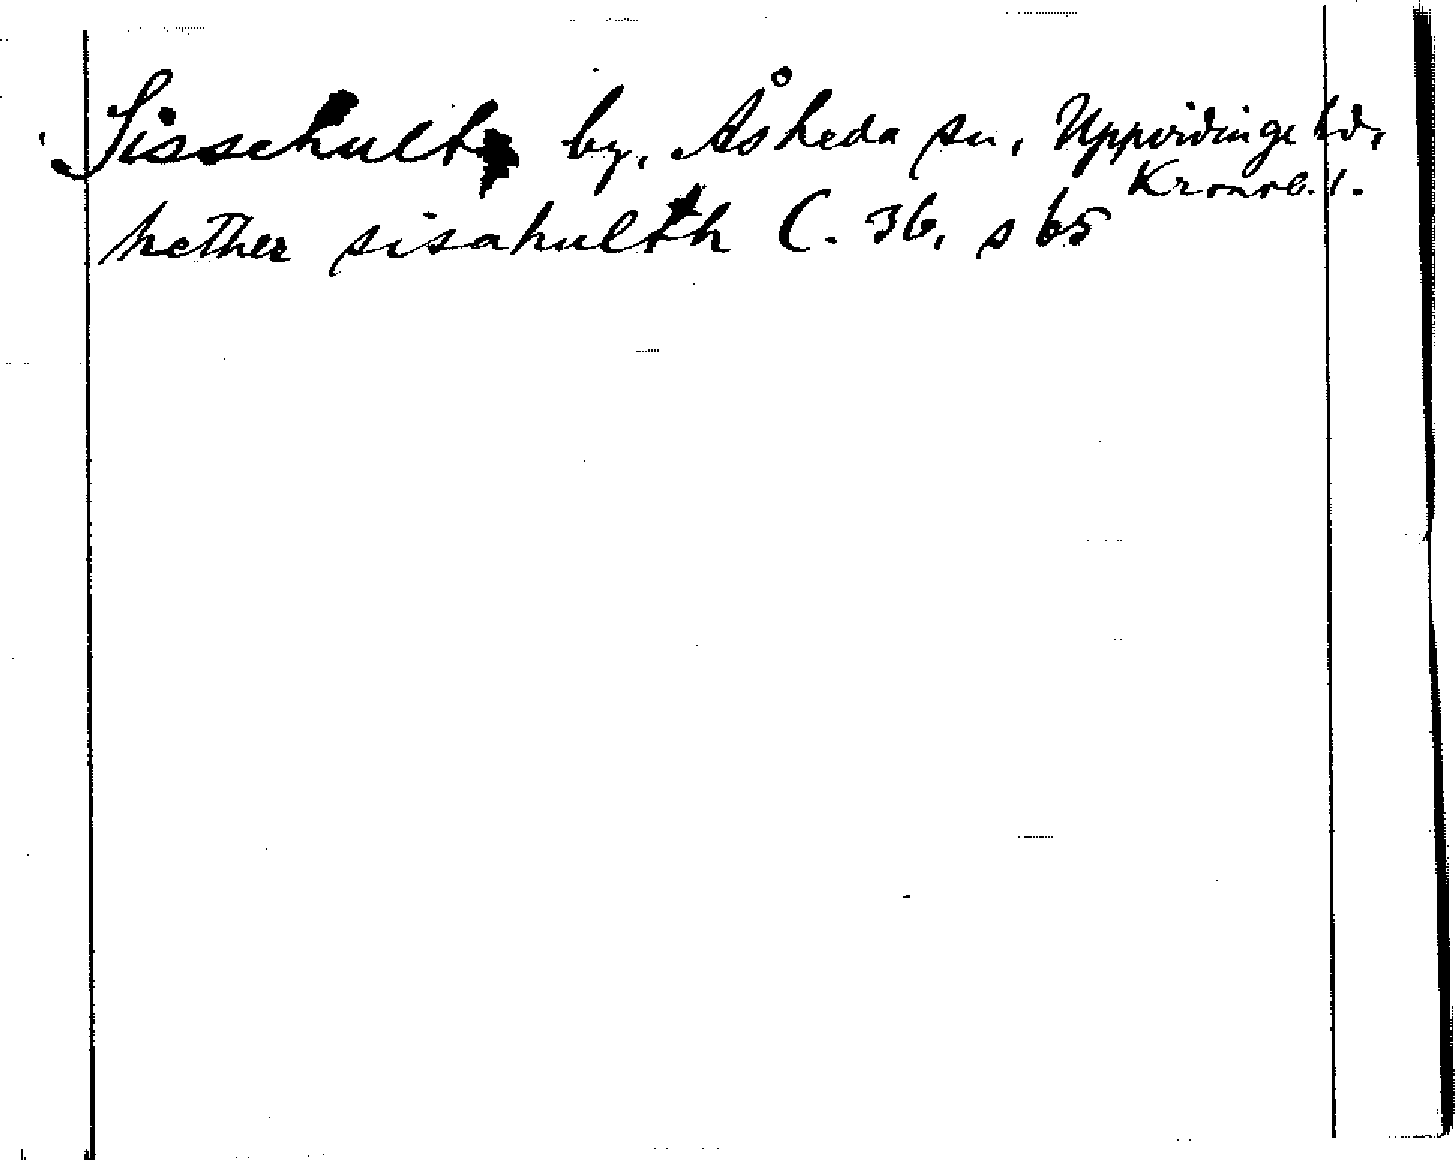 Sissehult, by, Åsheda sn, Uppvidinge hd,
Kronob. l.
hether sisahulth C. 36, s 65